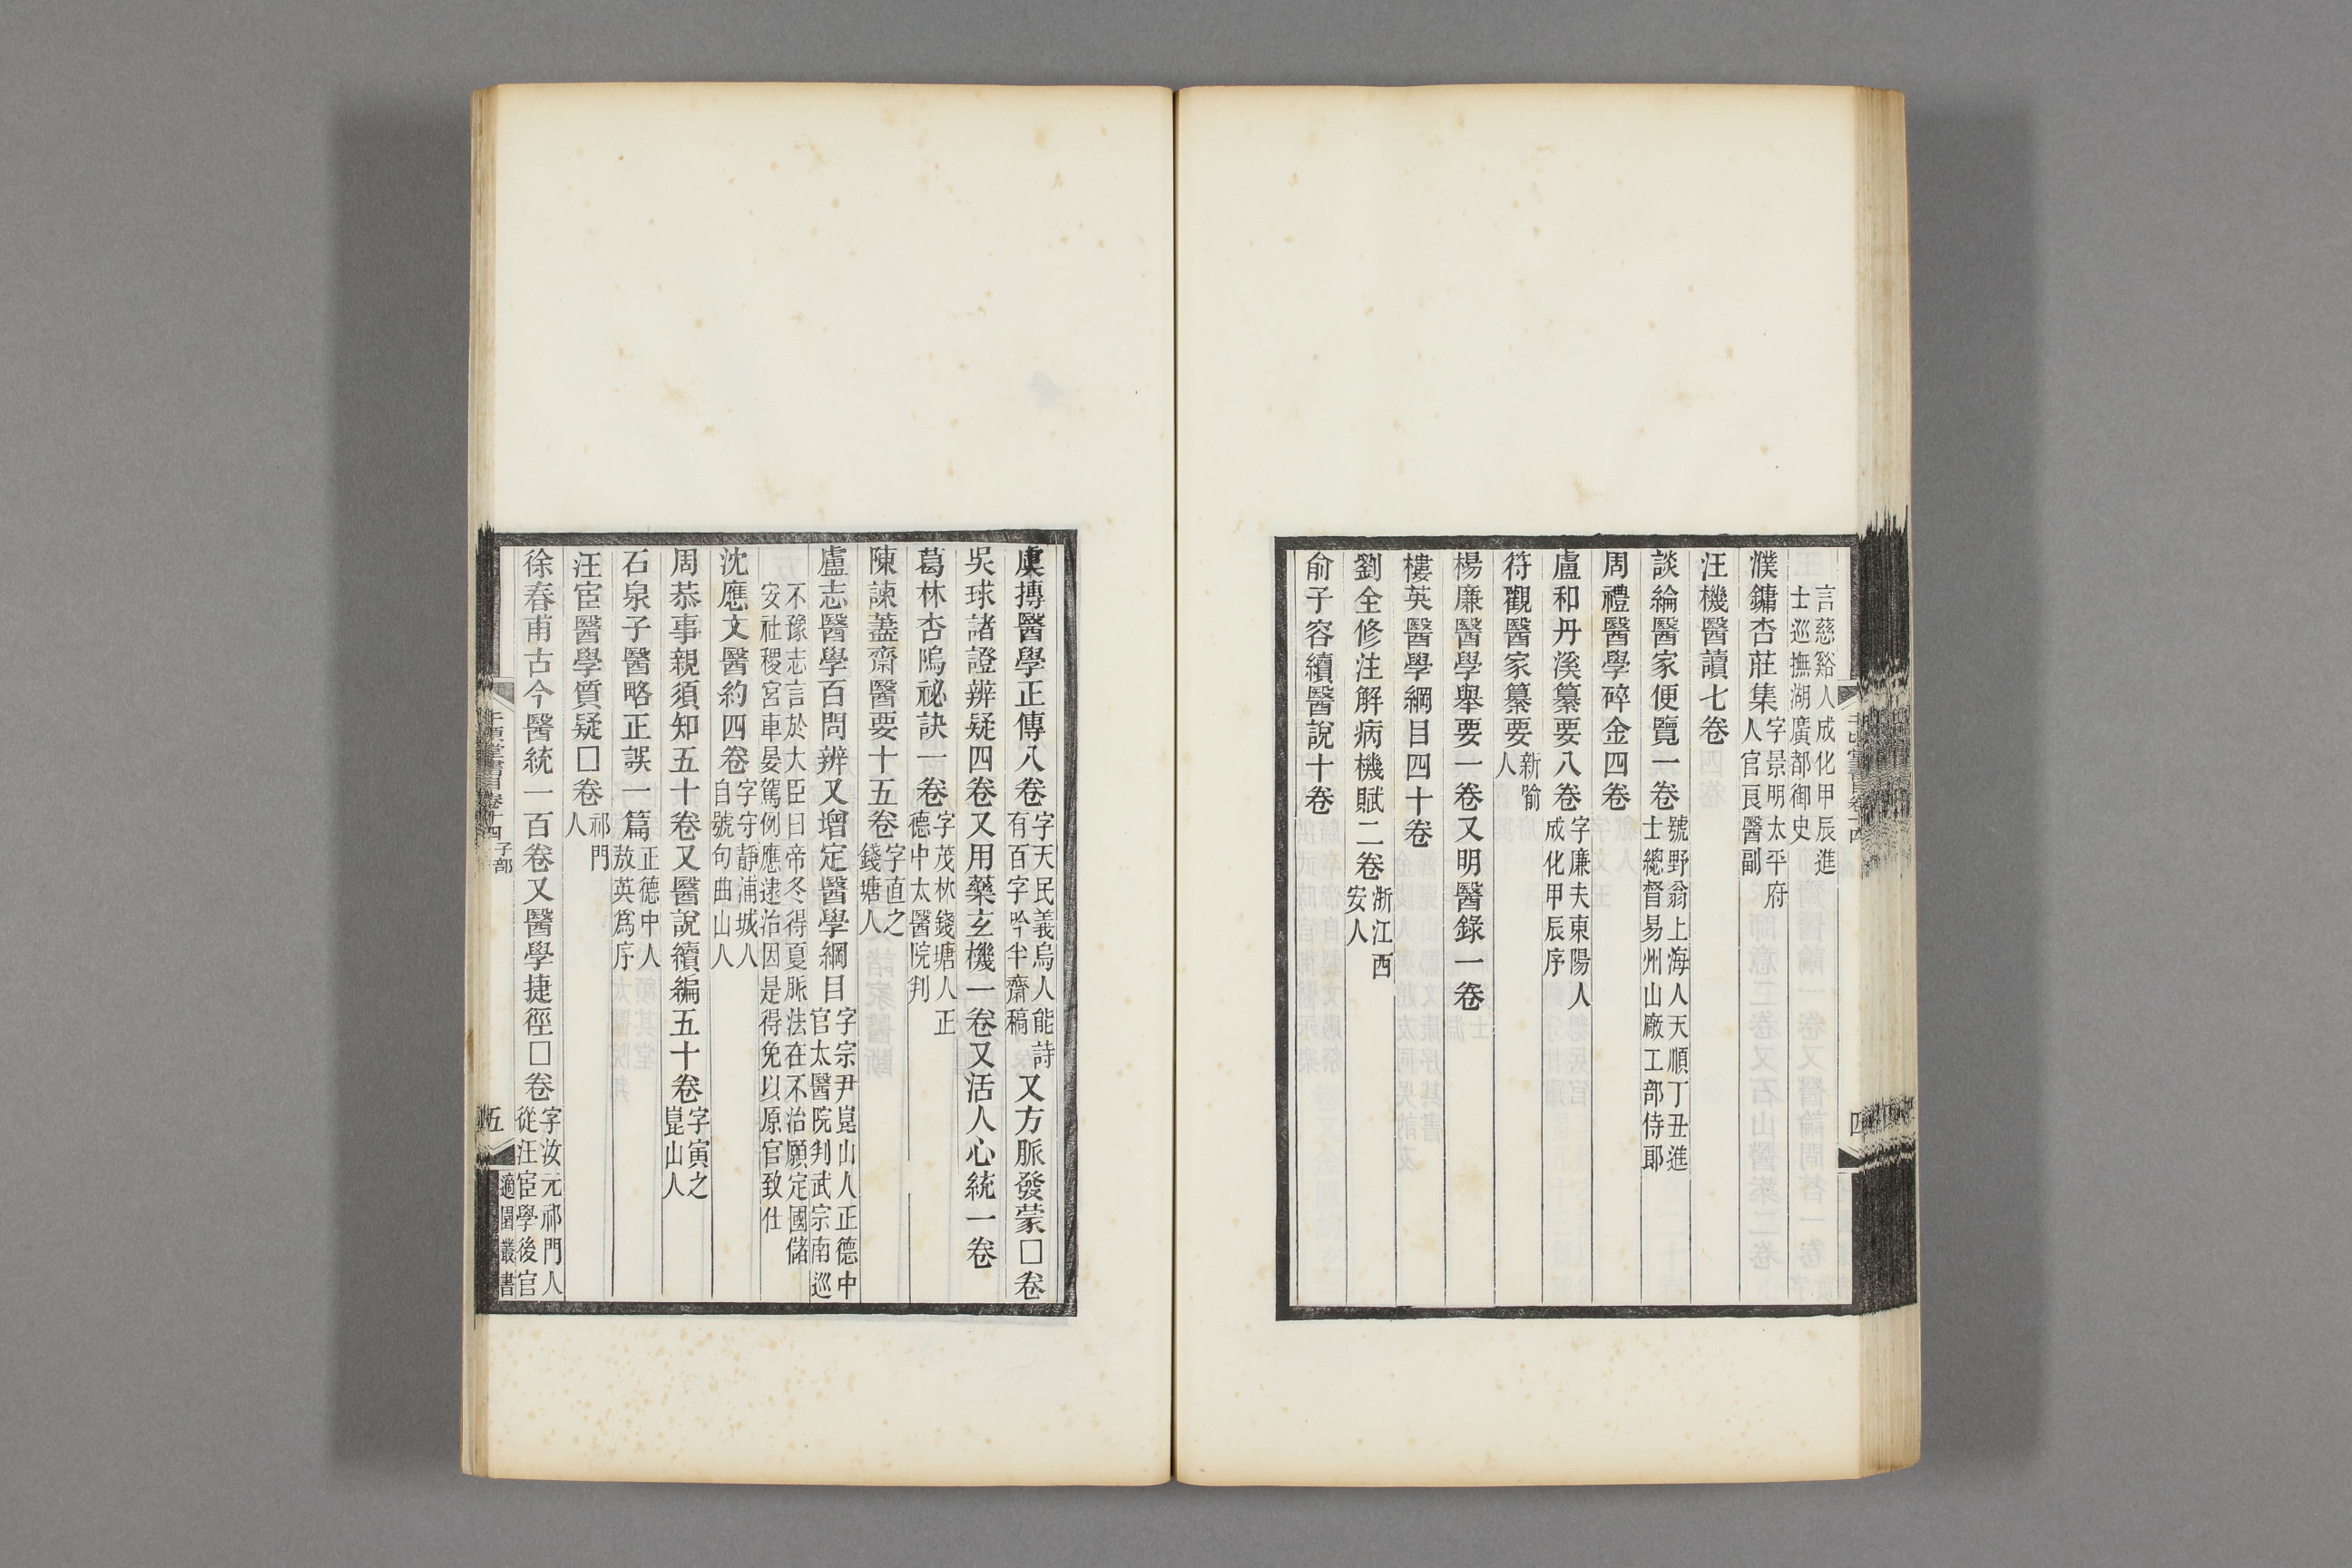 言慈谿人成化甲辰進
士巡撫湖廣都御史
濮鏞杏莊集字景明太平府
人官良醫副
汪機醫讀七卷
談綸醫家便覽一卷號野翁上海人天順丁丑進
士總督易州山廠工部侍郎
周禮醫學碎金四卷
盧和丹溪纂要八卷字廉夫東陽人
成化甲辰序
符觀醫家纂要新喻
人
楊廉醫學舉要一卷又明醫錄一卷
樓英醫學綱目四十卷
劉全修注解病機賦二卷浙江西
安人
俞子容續醫說十卷
四
虞摶醫學正傳八卷字天民義烏人能詩
有百字吟半齋稿又方脈發蒙□卷
吳球諸證辨疑四卷又用藥玄機一卷又活人心統一卷
葛林杏塢祕訣一卷字茂林錢塘人正
德中太醫院判
陳諫藎齋醫要十五卷字直之
錢塘人
盧志醫學百問辨又增定醫學綱目字宗尹崑山人正德中
官太醫院判武宗南巡
不豫志言於大臣曰帝冬得夏脈法在不治願定國儲
安社稷宮車晏駕例應逮治因是得免以原官致仕
沈應文醫約四卷字守靜浦城人
自號句曲山人
周恭事親須知五十卷又醫說續編五十卷字寅之
崑山人
石泉子醫略正誤一篇正德中人
敖英爲序
汪宦醫學質疑□卷祁門
人
徐春甫古今醫統一百卷又醫學捷徑□卷字汝元祁門人
從汪宦學後官
千頃堂書目卷十四 子部
五
適園叢書